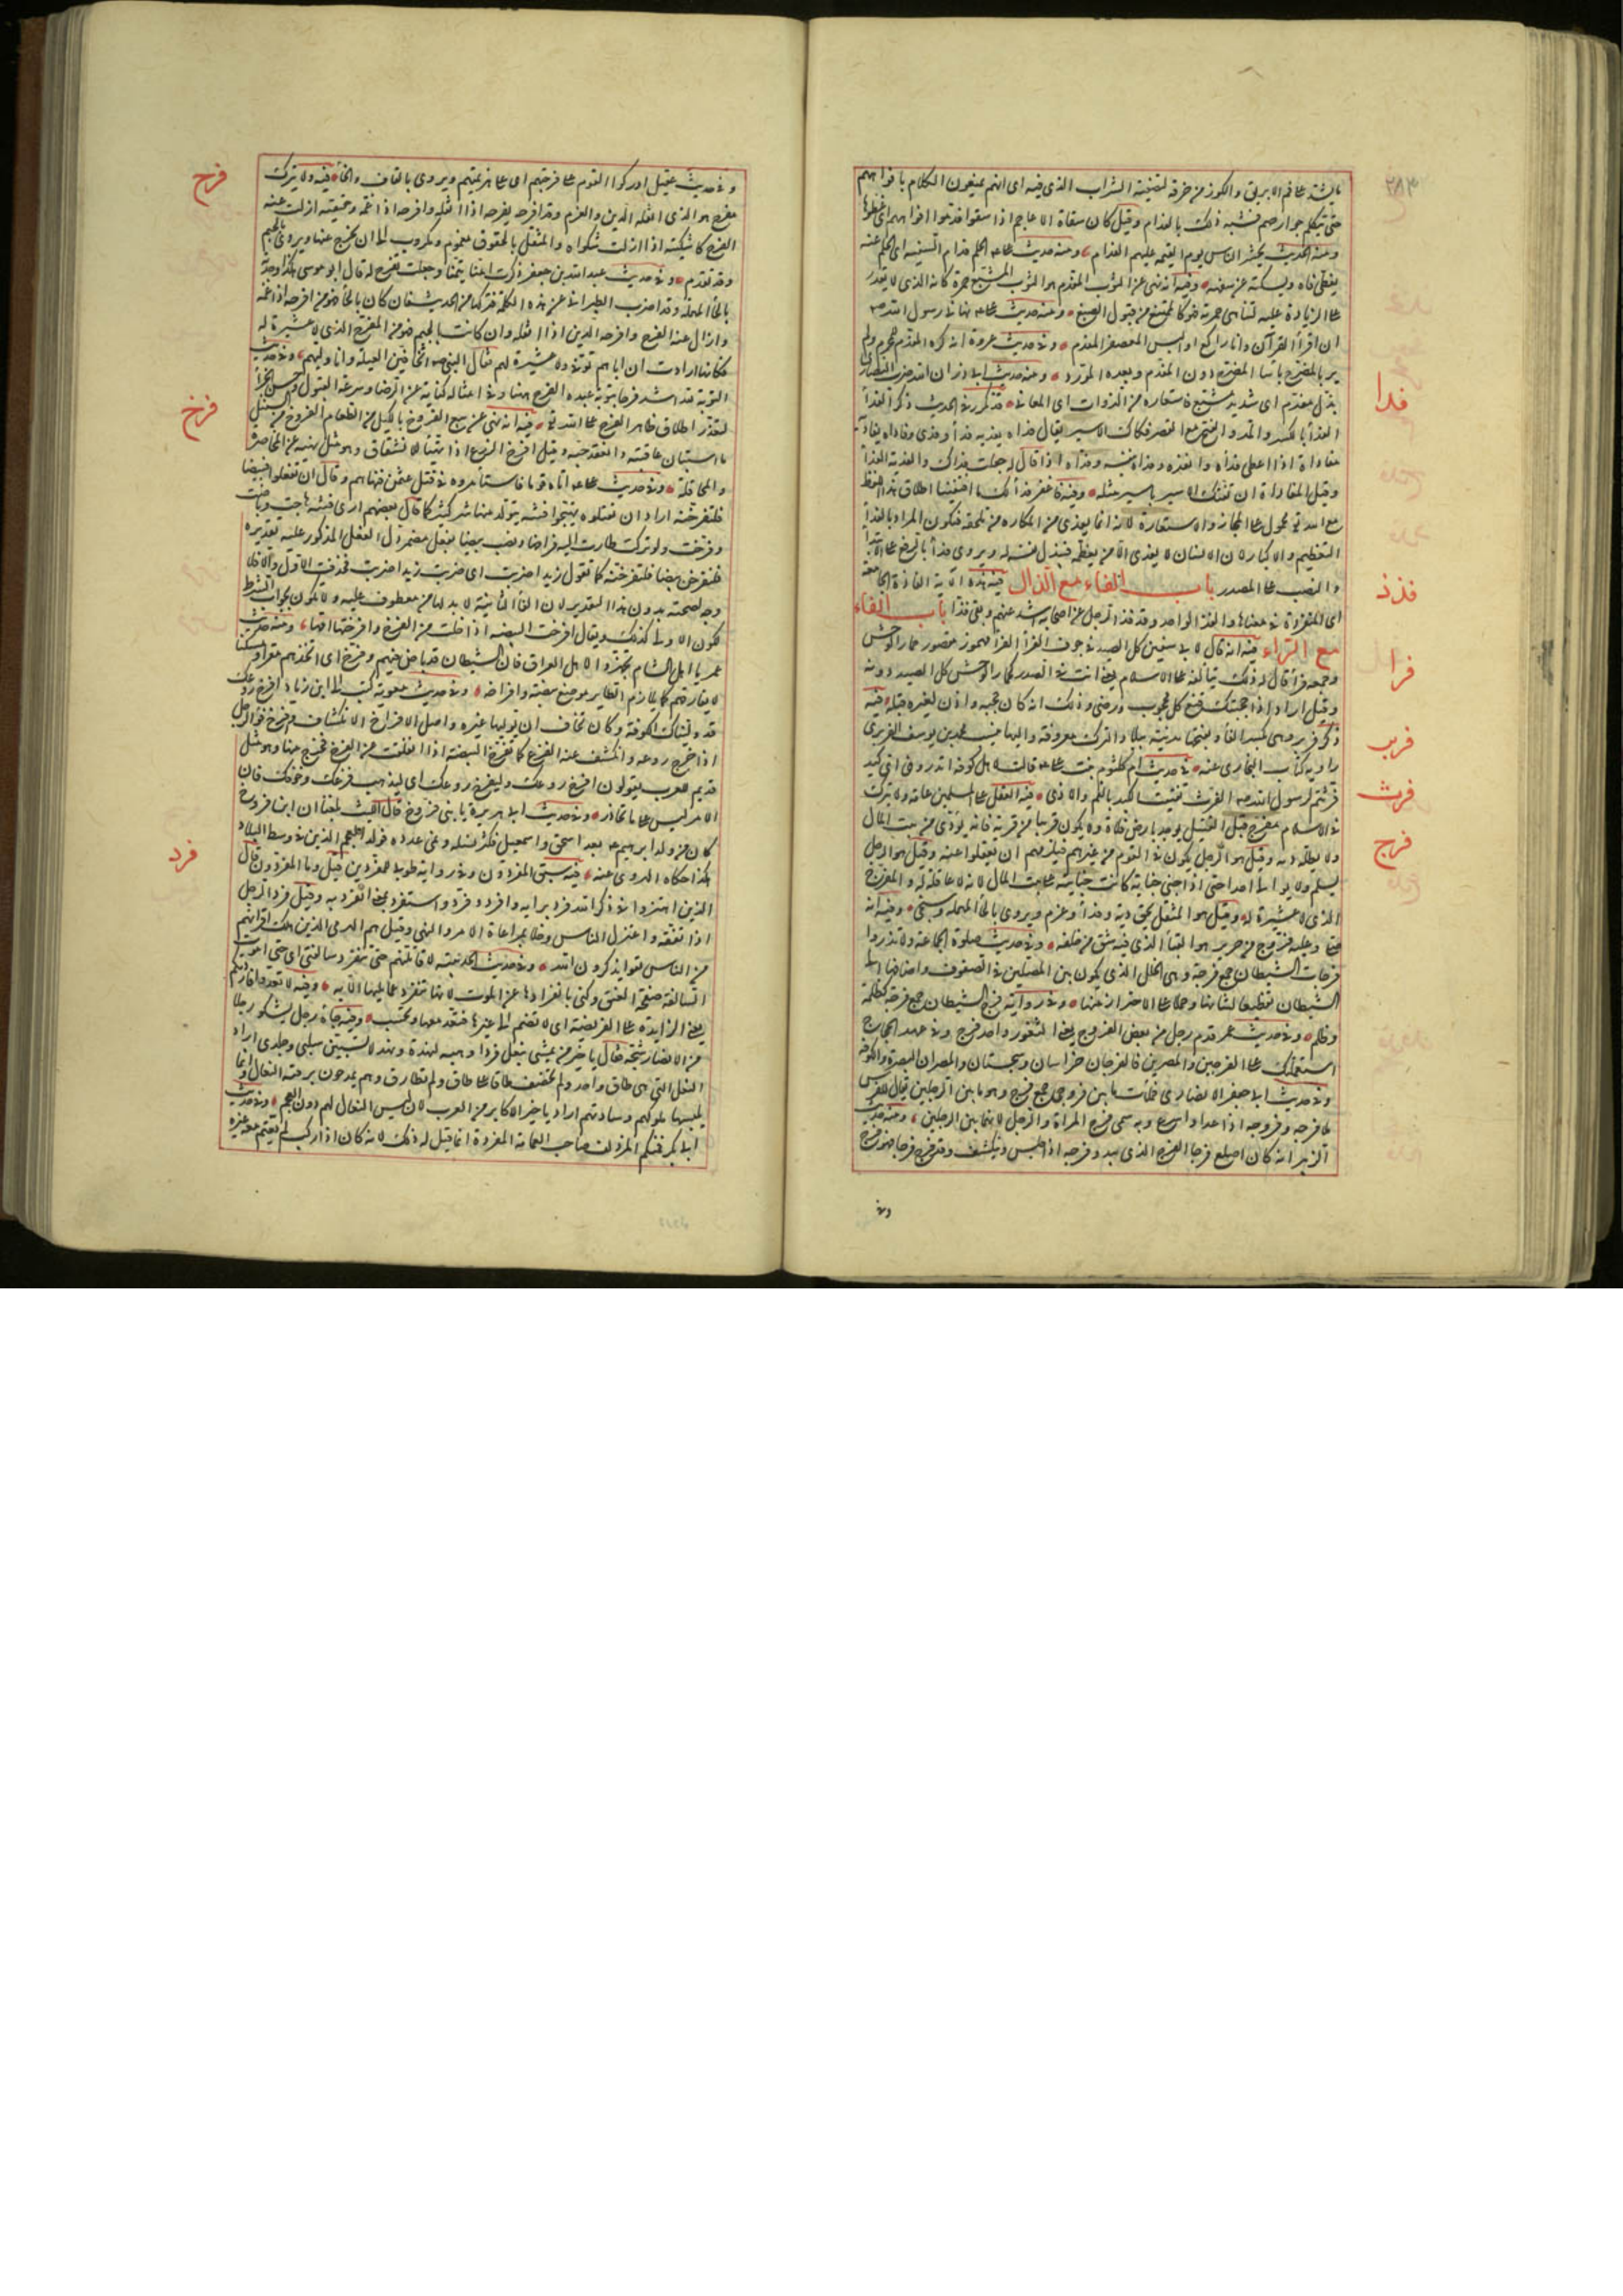 ٢٨٣
ما يشد على فم الابريق والكوز من خرقة لتصفية الشراب الذي فيه اى انهم يمنعون الكلام بافواههم
حتى يتكلم جوارحهم فشبه ذلك بالفدام وقيل كان سقاة الاعاجم اذا سقوا فدموا افواههم اى غطوها
ومنه الحديث يحشر الناس يوم القيمة عليهم الفدام ومنه حديث على الحلم فدام السفيه اى الحلم عنه
يغطى فاه ويسكته عن سفهه وفيه انه نهى عن الثوب المفدم هو الثوب المشبع حمرة كانه الذى لا يقدر
على الزيادة عليه لتناهى حمرته فهو كالممتنع من قبول الصبغ ومنه حديث على نهانى رسول الله
ان اقرأ القرآن وانا راكع او البس المعصفر المفدم وفى حديث عروة انه كره المفدم للمحرم ولم
ير بالمضرج باسا المضرج دون المفدم وبعده المورد ومنه حديث ابى ذر ان الله ضرب النصارى
بذل مفدم اى شديد مشبع فاستعاره من الذوات الى المعانى قد تكرر فى الحديث ذكر الفداء
فدا
الفداء بالكسر والمد والفتح مع القصر فكاك الاسير يقال فداه يفديه فداء وفدى وفاداه يفاديه
مفاداة اذا اعطى فداه وانقذه وفداه بنفسه وفداه اذا قال له جعلت فداك والفدية الفداء
وقيل المفاداة ان تفتك الاسير باسير مثله وفيه فاغفر فداء لك ما اقتفينا اطلاق هذا اللفظ
مع الله تع محمول على المجاز والاستعارة لانه انما يفدى من المكاره من تلحقه فيكون المراد بالفداء
التعظيم والاكبار لان الانسان لا يفدى الا من يعظمه فيبذل نفسه له ويروى فداء بالرفع على الابتداء
والنصب على المصدر باب الفاء مع الذال فيه هذه الآية الفاذة الجامعة
فذذ
اى المنفردة فى معناها والفذ الواحد وقد فذ الرجل عن اصحابه شذ عنهم وبقى فذا باب الفاء
مع الراء فيه انه قال لابى سفين كل الصيد فى جوف الفرأ الفرأ مهموز مقصور حمار الوحش
فرا
وجمعه فراء قال له ذلك يتألفه على الاسلام يعنى انت فى الصيد كحمار الوحش كل الصيد دونه
وقيل اراد اذا حجبتك قنع كل محجوب ورضى وذلك انه كان حجبه واذن لغيره قبله فيه
فرب
ذكر فربر وهى بكسر الفاء وفتحها مدينة ببلاد الترك معروفة واليها ينسب محمد بن يوسف الفربرى
راوية كتاب البخارى عنه فى حديث ام كلثوم بنت على قالت لاهل كوفة اتدرون اى كبد
فرث
فرثتم لرسول الله الفرث تفتيت الكبد بالغم والاذى فيه العقل على المسلمين عامة ولا يترك
فرج
فى الاسلام مفرج قيل القتيل يوجد بارض فلاة ولا يكون قريبا من قرية فانه يودى من بيت المال
ولا يطل دمه وقيل هو الرجل يكون فى القوم من غيرهم فيلزمهم ان يعقلوا عنه وقيل هو الرجل
يسلم ولا يوالى احدا حتى اذا جنى جناية كانت جنايته على بيت المال لانه لا عاقلة له والمفرج
الذى لا عشيرة له وقيل هو المثقل بحق دية وفداء وغرم ويروى بالحاء المهملة وسيجئ وفيه انه
صلى وعليه فروج من حرير هو القباء الذى فيه شق من خلفه وفى حديث صلوة الجماعة ولا تذروا
فرجات الشيطان جمع فرجة وهى الخلل الذى يكون بين المصلين فى الصفوف واضافها الى
الشيطان تفظيعا لشانها وحملا على الاحتراز منها وفى رواية فرج الشيطان جمع فرجة كظلمة
وظلم وفى حديث عمر قدم رجل من بعض الفروج يعنى الثغور واحد فرج وفى عهد الحجاج
استعملتك على الفرجين والمصرين فالفرجان خراسان وسجستان والمصران البصرة والكوفة
وفى حديث ابى جعفر الانصارى فملأت ما بين فروجى جمع فرج وهو ما بين الرجلين يقال للفرس
ملأ فرجه وفروجه اذا عدا واسرع وبه سمى فرج المراة والرجل لانهما بين الرجلين ومنه حديث
الزبير انه كان اجلع فرجا الفرج الذى يبدو فرجه اذا جلس وينكشف وقد فرج فرجا فهو فرج
وفى
وفى حديث عقيل ادركوا القوم على فرجتهم اى على هزيمتهم ويروى بالقاف والحاء فيه ولا يترك
فرح
مفرح هو الذى اثقله الدين والغرم وقد افرحه يفرحه اذا اثقله وافرحه اذا غمه وحقيقته ازلت عنه
الفرح كاشكيته اذا ازلت شكواه والمثقل بالحقوق مغموم مكروب الى ان يخرج عنها ويروى بالجيم
وقد تقدم وفى حديث عبد الله بن جعفر ذكرت امنا يتمنا وجعلت تفرح له قال ابو موسى هكذا وجدته
بالحاء المهملة وقد اضرب الطبرانى عن هذه الكلمة فتركها من الحديث فان كان بالحاء فهو من افرحه اذا غمه
وازال عنه الفرح وافرحه الدين اذا اثقله وان كانت بالجيم فهو من المفرج الذى لا عشيرة له
فكانها ارادت ان اباهم توفى ولا عشيرة لهم فقال النبى اتخافين العيلة وانا وليهم وفى حديث
التوبة لله اشد فرحا بتوبة عبده الفرح ههنا وفى امثاله كناية عن الرضا وسرعة القبول وحسن الجزاء
لتعذر اطلاق ظاهر الفرح على الله تع فيه انه نهى عن بيع الفروخ بالكيل من الطعام الفروخ من السنبل
فرخ
ما استبان عاقبته وانعقد حبه وقيل افرخ الزرع اذا تهيأ للانشقاق وهو مثل نهيه عن المخاضرة
والمحاقلة وفى حديث على اتاه قوم فاستأمروه فى قتل عثمن فنهاهم وقال ان تفعلوا فبيضا
فلتفرخنه اراد ان تقتلوه يهيجوا فتنة يتولد منها شر كثير كما قال بعضهم ارى فتنة هاجت وباضت
وفرخت ولو تركت طارت اليه فراخها ونصب بيضا بفعل مضمر دل الفعل المذكور عليه تقديره
فلتفرخن بيضا فلتفرخنه كما تقول زيدا ضربت اى ضربت زيدا ضربت فحذف الاول والا فلا
وجه لصحته بدون هذا التقدير لان الفاء الثانية لا بد لها من معطوف عليه ولا تكون لجواب الشرط
لكون الاولى كذلك ويقال افرخت البيضة اذا خلت من الفرخ وافرختها امها ومنه حديث
عمر يا اهل الشام تجهزوا لاهل العراق فان الشيطان قد باض فيهم وفرخ اى اتخذهم مقرا ومسكنا
لا يفارقهم كما يلازم الطاير موضع بيضه وافراخه وفى حديث معوية كتب الى ابن زياد افرخ روعك
قد وليناك الكوفة وكان يخاف ان يوليها غيره واصل الافراخ الانكشاف وافرخ فؤاد الرجل
اذا خرج روعه وانكشف عنه الفزع كما تفرخ البيضة اذا انفلقت من الفرخ فخرج منها وهو مثل
قديم للعرب يقولون افرخ روعك وليفرخ روعك اى ليذهب فزعك وخوفك فان
الامر ليس على ما تحاذر وفى حديث ابى هريرة يا بنى فروخ قال الليث بلغنا ان ابن فروخ
كان من ولد ابرهيم بعد اسحق واسمعيل فكثر نسله ونمى عدده فولد العجم الذين فى وسط البلاد
هكذا حكاه الازهرى عنه فيه سبق المفردون وفى رواية طوبى للمفردين قيل وما المفردون قال
فرد
الذين اهتزوا فى ذكر الله فرد برايه وافرد وفرد واستفرد بمعنى انفرد به وقيل فرد الرجل
اذا تفقه واعتزل الناس وخلا بمراعاة الامر والنهى وقيل هم الهرمى الذين هلك اقرانهم
من الناس فبقوا يذكرون الله وفى حديث الحديبية لاقاتلنهم حتى تنفرد سالفتى اى حتى اموت
السالفة صفحة العنق وكنى بانفرادها عن الموت لانها لا تنفرد عما يليها الا به وفيه لا تعد فاردتكم
يعنى الزايدة على الفريضة اى لا تضم الى غيرها فتعد معها وتحسب وفيه جاءه رجل يشكو رجلا
من الانصار شجه فقال يا خير من يمشى بنعل فرد اوهبه لنهدة ونهد لا تسبين سلبى وجلدى اراد
النعل التى هى طاق واحد ولم تخصف طاقا على طاق ولم تطارق وهم يمدحون برقة النعال وانما
يلبسها ملوكهم وساداتهم اراد يا خير الاكابر من العرب لان لبس النعال لهم دون العجم وفى حديث
ابى بكر فمنكم المزدلف صاحب العمامة الفردة انما قيل له ذلك لانه كان اذا ركب لم يعتم معه غيره